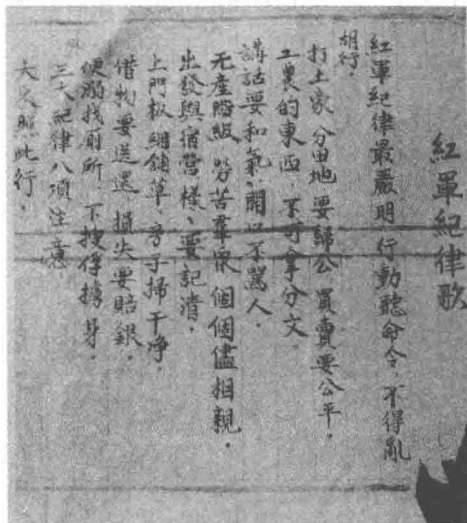 紅軍紀律歌
紅軍紀律最嚴明，行動聽命令，不得亂
胡行，
打土豪，分田地，要歸公，買賣要公平，
工農的東西，不可拿分文，
講話要和氣，開口不罵人，
无產階級，勞苦羣眾，個個儘相親，
出發與宿營樣，要記清，
上門板，綑鋪草，房子掃干净，
借物要送還，損失要賠銀，
便溺找廁所，下搜俘擄身，
三大紀律八項注意，
大家照此行，